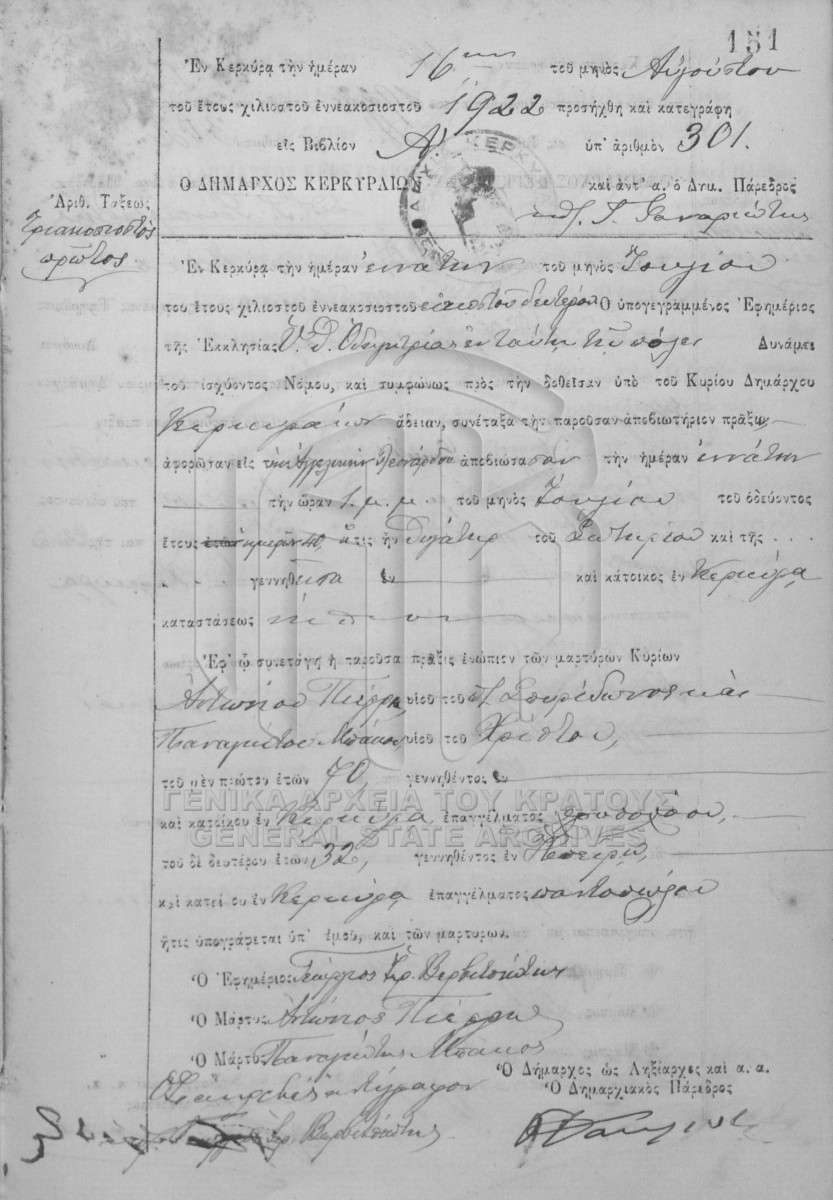 151
Ἐν Κερκύρᾳ τὴν ἡμέραν 16ην τοῦ μηνὸς Αὐγούστου
τοῦ ἔτους χιλιοστοῦ ἐννεακοσιοστοῦ 1922 προσήχθη καὶ κατεγράφη
εἰς Βιβλίον Α' ὑπ' ἀριθμὸν 301.
Ο ΔΗΜΑΡΧΟΣ ΚΕΡΚΥΡΑΙΩΝ καὶ ἀντ' α. ὁ Δημ. Πάρεδρος
Ἀριθ. Τάξεως
Τριακοσιοστὸς
πρῶτος.
Ἐν Κερκύρᾳ τὴν ἡμέραν ἐννάτην τοῦ μηνὸς Ἰουλίου
του ἔτους χιλιοστοῦ ἐννεακοσιοστοῦ εἰκοστοῦ δευτέρου Ὁ ὑπογεγραμμένος Ἐφημέριος
τῆς Ἐκκλησίας Ὑ. Θ. Ὁδηγητρίας ἐν ταύτῃ τῇ πόλει Δυνάμει
τοῦ ἰσχύοντος Νόμου, καὶ συμφώνως πρὸς τὴν δοθεῖσαν ὑπὸ τοῦ Κυρίου Δημάρχου
Κερκυραίων ἄδειαν, συνέταξα τὴν παροῦσαν ἀποβιωτήριον πρᾶξιν,
ἀφορῶταν εἰς τὴν Ἀγγελικὴν ἀποβιώσασαν τὴν ἡμέραν ἐννάτην
τὴν ὥραν 1. μ. μ. τοῦ μηνὸς Ἰουλίου τοῦ ὁδεύοντος
ἔτους ἐτῶν ἡμερῶν 40, ἥτις ἦν θυγάτηρ τοῦ Σωτηρίου καὶ τῆς . . .
. . γεννηθεῖσα ἐν καὶ κάτοικος ἐν Κερκύρᾳ
καταστάσεως νήπιον
Ἐφ' ᾧ συνετάγη ἡ παροῦσα πρᾶξις ἐνώπιον τῶν μαρτύρων Κυρίων
Ἀντωνίου Πιέρρη υἱοῦ τοῦ π. Σπυρίδωνος καὶ
Παναγιώτου Μπάκου υἱοῦ τοῦ Χρίστου,
τοῦ μὲν πρώτου ἐτῶν 70, γεννηθέντος ἐν
ΓΕΝΙΚΑ ΑΡΧΕΙΑ ΤΟΥ ΚΡΑΤΟΥΣ
καὶ κατοίκου ἐν Κερκύρᾳ, ἐπαγγέλματος
GENERAL STATE ARCHIVES
τοῦ δὲ δευτέρου ἐτῶν 32, γεννηθέντος ἐν Ἠπείρῳ,
καὶ κατοίκου ἐν Κερκύρᾳ ἐπαγγέλματος παντοπώλου
ἥτις ὑπογράφεται ὑπ' ἐμοῦ, καὶ τῶν μαρτύρων.
Ὁ Ἐφημέριος Γεώργιος
Ὁ Μάρτυς Ἀντώνιος Πιέρρης
Ὁ Μάρτυς Παναγιώτης Μπάκος
Ὁ Δήμαρχος ὡς Ληξίαρχος καὶ α. α.
Ὁ Δημαρχιακὸς Πάρεδρος
ἀντίγραφον